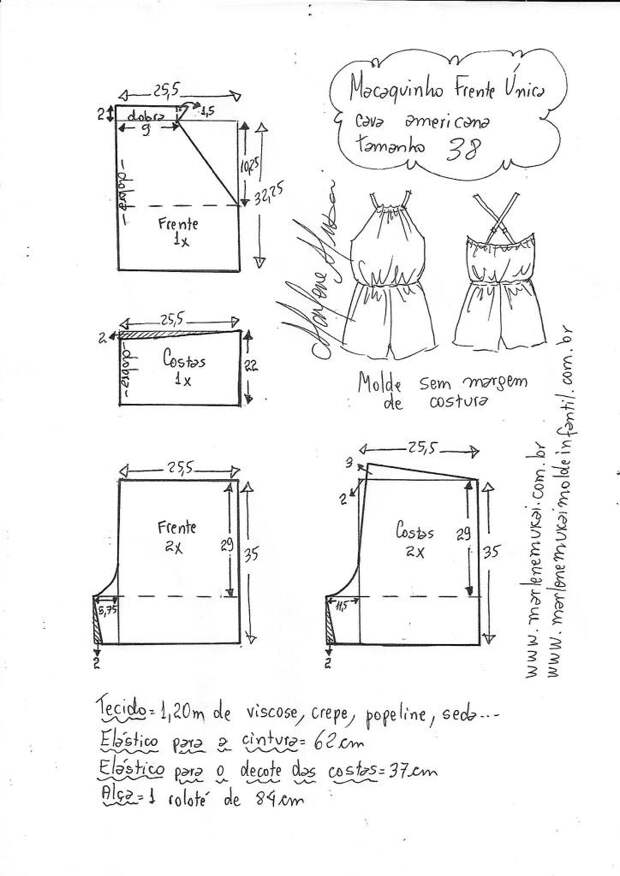 Macaquinho Frente Única
cava americana
tamanho 38
25,5
2
dobra
1,5
9
10,25
32,25
dobra
Frente
1x
Marlene Mukai
25,5
2
dobra
Costas
1x
22
Molde sem margem
de costura
www.marlenemukai.com.br
www.marlenemukaimoldeinfantil.com.br
25,5
Frente
2x
29
35
5,75
2
25,5
3
2
Costas
2x
29
35
11,5
2
Tecido = 1,20m de viscose, crepe, popeline, seda...
Elástico para a cintura = 62cm
Elástico para o decote das costas = 37cm
Alça = 1 roloté de 84cm